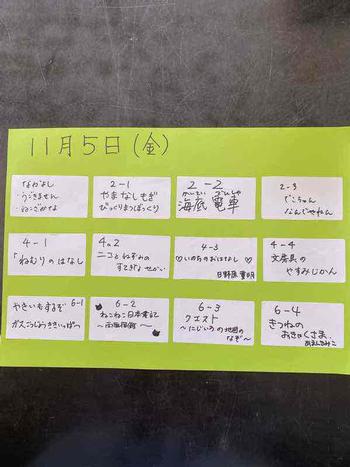 11月5日(金)
なかよし
・うごきません
・ねこざかな
2-1
やまなしもぎ
びっくりまつぼっくり
2-2
かいてい でんしゃ
海底電車
2-3
でこちゃん
なんでやねん
4-1
「ねむりのはなし
4.2
ニコとねずみの
すてきなせかい
4-3
♡いのちのおはなし♡
日野原重明
4-4
文房具の
やすみじかん
6-1
やきいもするぞ
6-2
ねこねこ日本史記
6-3
クエスト
〜にじいろの地図の
なぞ〜
6-4
きつねの
おきゃくさま
あまんきみこ